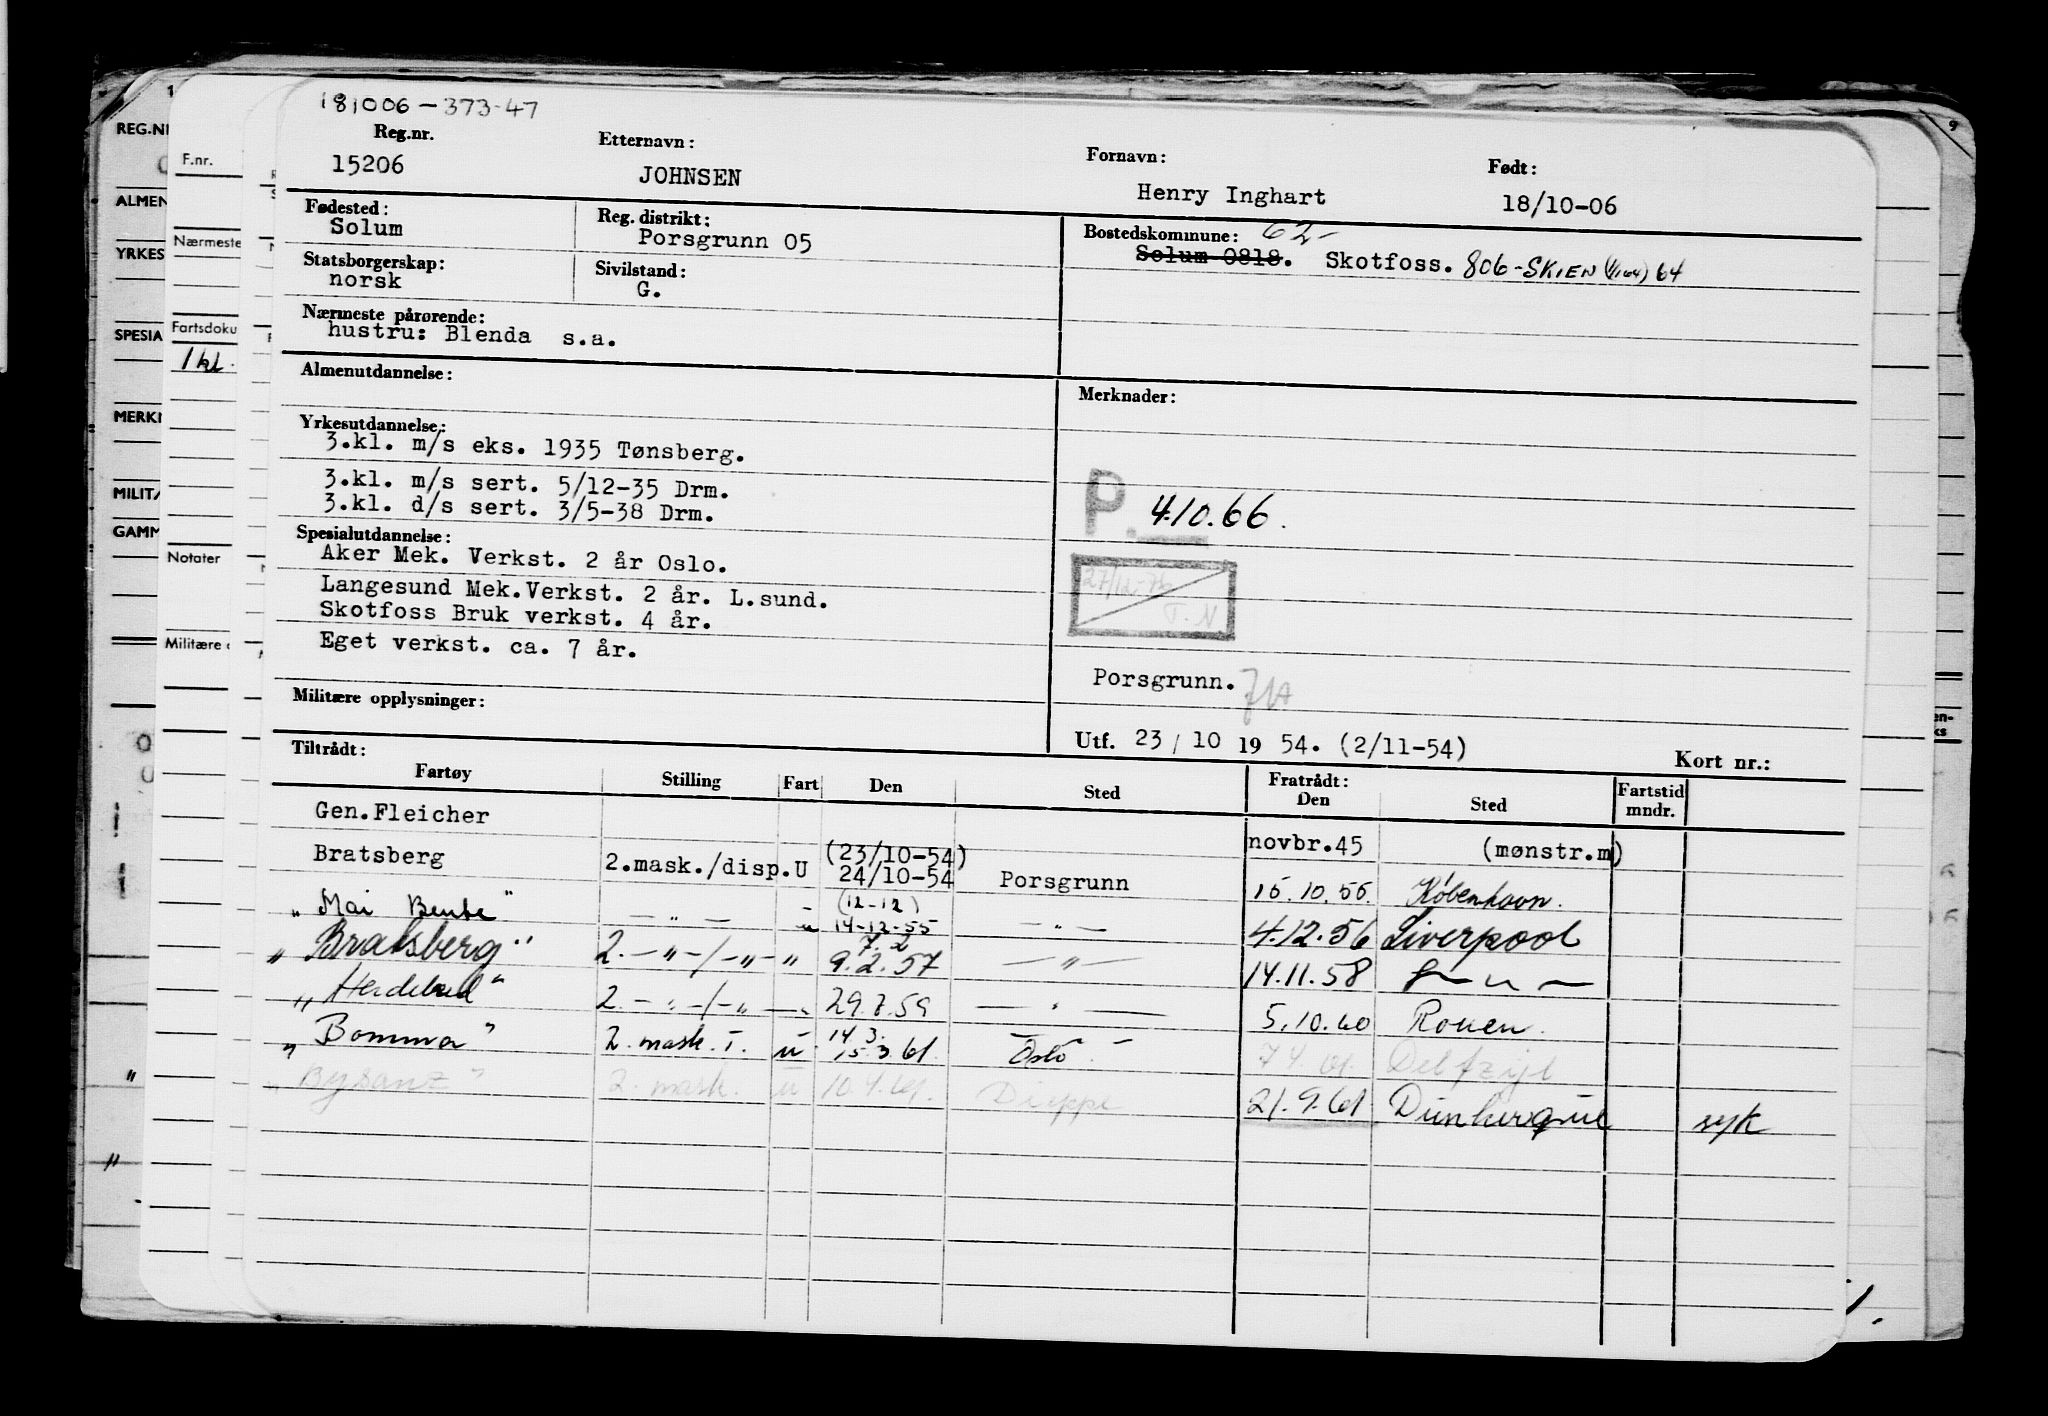 181006-373-47
Reg.nr. Etternavn: Fornavn: Født:
15206 JOHNSEN Henry Inghart 18/10-06
Fødested: Reg. distrikt: Bostedskommune: 62-
Solum Porsgrunn 05 Solum 0818. Skotfoss. 806-SKIEN (1/1 64) 64
Statsborgerskap: Sivilstand:
norsk G.
Nærmeste pårørende:
hustru: Blenda s.a.
Almenutdannelse: Merknader:
Yrkesutdannelse:
3.kl. m/s eks. 1935 Tønsberg.
3.kl. m/s sert. 5/12-35 Drm.
3.kl. d/s sert. 3/5-38 Drm.
P. 4.10.66.
Spesialutdannelse:
Aker Mek. Verkst. 2 år Oslo.
Langesund Mek.Verkst. 2 år. L.sund.
Skotfoss Bruk verkst. 4 år.
Eget verkst. ca. 7 år.
27/12-76
T.N
Porsgrunn.
Militære opplysninger:
Utf. 23/10 1954. (2/11-54) Kort nr.:
Tiltrådt: Fratrådt:
Fartøy Stilling Fart Den Sted Den Sted Fartstid mndr.
Gen.Fleicher novbr.45 (mønstr.m)
Bratsberg 2.mask./disp.U (23/10-54) 24/10-54 Porsgrunn 15.10.55. København.
"Mai Bente" — " — u (12-12) 14-12-55 — " — 4.12.56 Liverpool
"Bratsberg" 2.—"—/—"—" 7.2 9.2.57 — " — 14.11.58 — " —
"Herdebred" 2.—"—/—"— " 29.8.59 — " — 5.10.60 Rouen.
"Bomma" 2. mask. I. u 14.3. 15.3.61. Oslo 7.4.61. Delfzijl
"Bysanz" 2. mask. u 10.4.61. Dieppe 21.9.61 Dunkerque syk
REG.NR
ALMEN
YRKES
SPESIA
MERKN
MILITÆ
GAMM
F.nr.
Nærmeste
Fartsdoku
1 kl.
Notater
Militære o